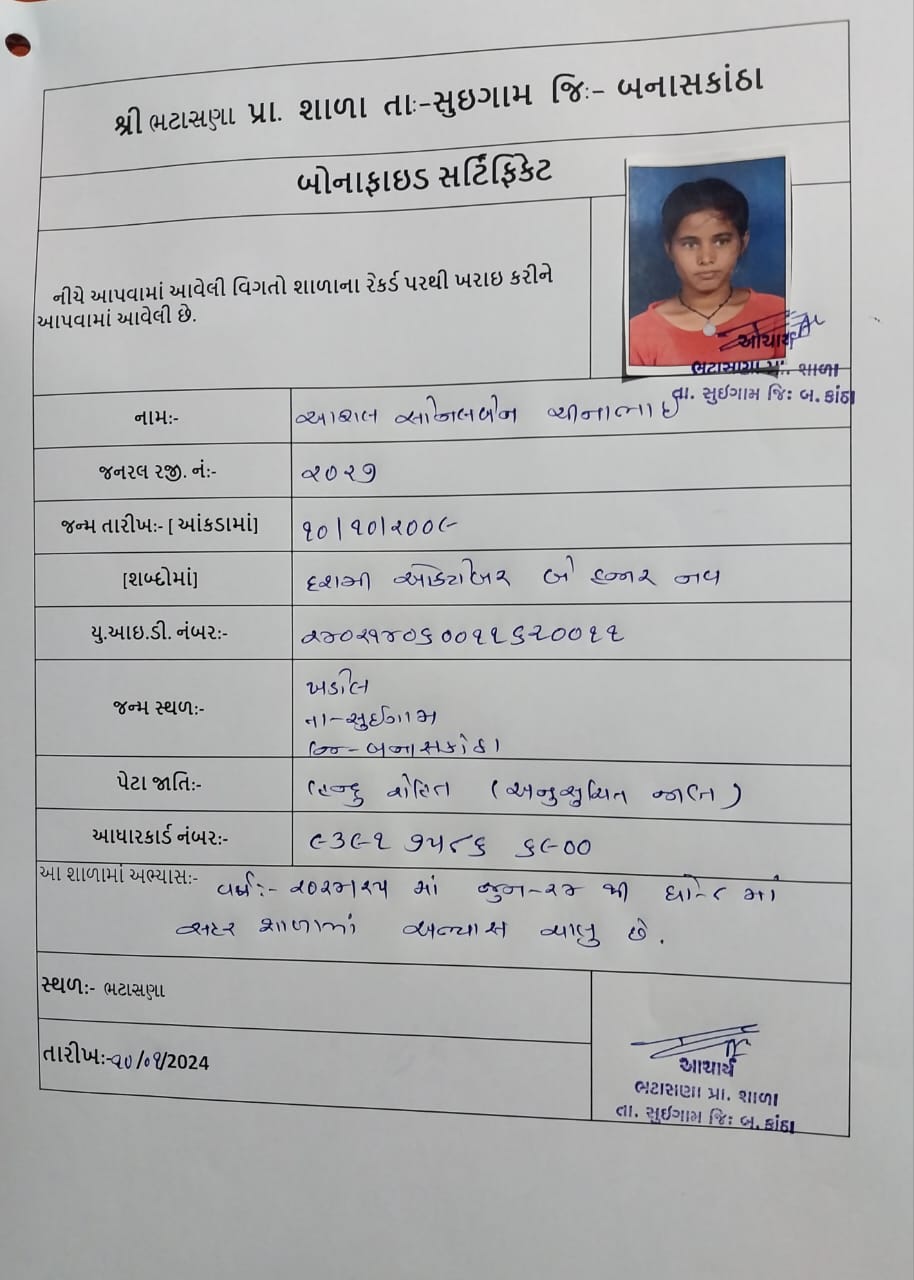 શ્રી ભટાસણા પ્રા. શાળા તાઃ-સુઇગામ જિઃ- બનાસકાંઠા
બોનાફાઇડ સર્ટિફિકેટ
નીચે આપવામાં આવેલી વિગતો શાળાના રેકર્ડ પરથી ખરાઇ કરીને
આપવામાં આવેલી છે.
આચાર્ય
ભટાસણા પ્રા. શાળા
તા. સુઈગામ જિઃ બ. કાંઠા
નામઃ- સોનલબેન ચીનાભાઈ
જનરલ રજી. નંઃ- ૨૦૨૭
જન્મ તારીખઃ- [ આંકડામાં] ૧૦/૧૦/૨૦૦૯
[શબ્દોમાં] દશમી ઓક્ટોબર બે હજાર નવ
યુ.આઇ.ડી. નંબરઃ-
જન્મ સ્થળઃ- ખડોલ
તા-સુઈગામ
જિ-બનાસકાંઠા
પેટા જાતિઃ- હિન્દુ રોહિત (અનુસુચિત જાતિ)
આધારકાર્ડ નંબરઃ- ૯૩૯૧ ૭૫૮૬ ૬૯૦૦
આ શાળામાં અભ્યાસઃ- વર્ષઃ- ૨૦૨૪૨૫ માં જુન-૨૪ થી ધો-૮ માં
સદર શાળામાં અભ્યાસ ચાલુ છે.
સ્થળઃ- ભટાસણા
તારીખઃ- /2024
આચાર્ય
ભટાસણા પ્રા. શાળા
તા. સુઈગામ જિઃ બ. કાંઠા